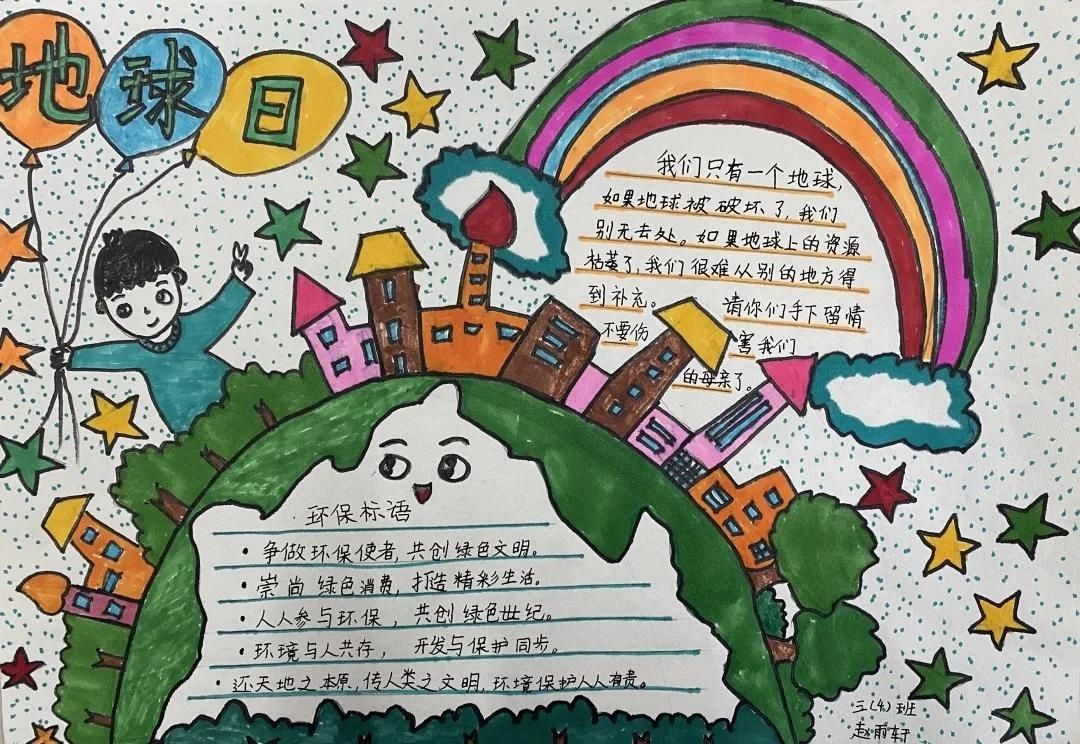 地球日
我们只有一个地球，
如果地球被破坏了，我们
别无去处。如果地球上的资源
枯萎了，我们很难从别的地方得
到补充。 请你们手下留情
不要伤 害我们
的母亲了。
环保标语
• 争做环保使者，共创绿色文明。
• 崇尚绿色消费，打造精彩生活。
• 人人参与环保，共创绿色世纪。
• 环境与人共存，开发与保护同步。
• 还天地之本原，传人类之文明，环境保护人人有责。
三（4）班
赵雨轩